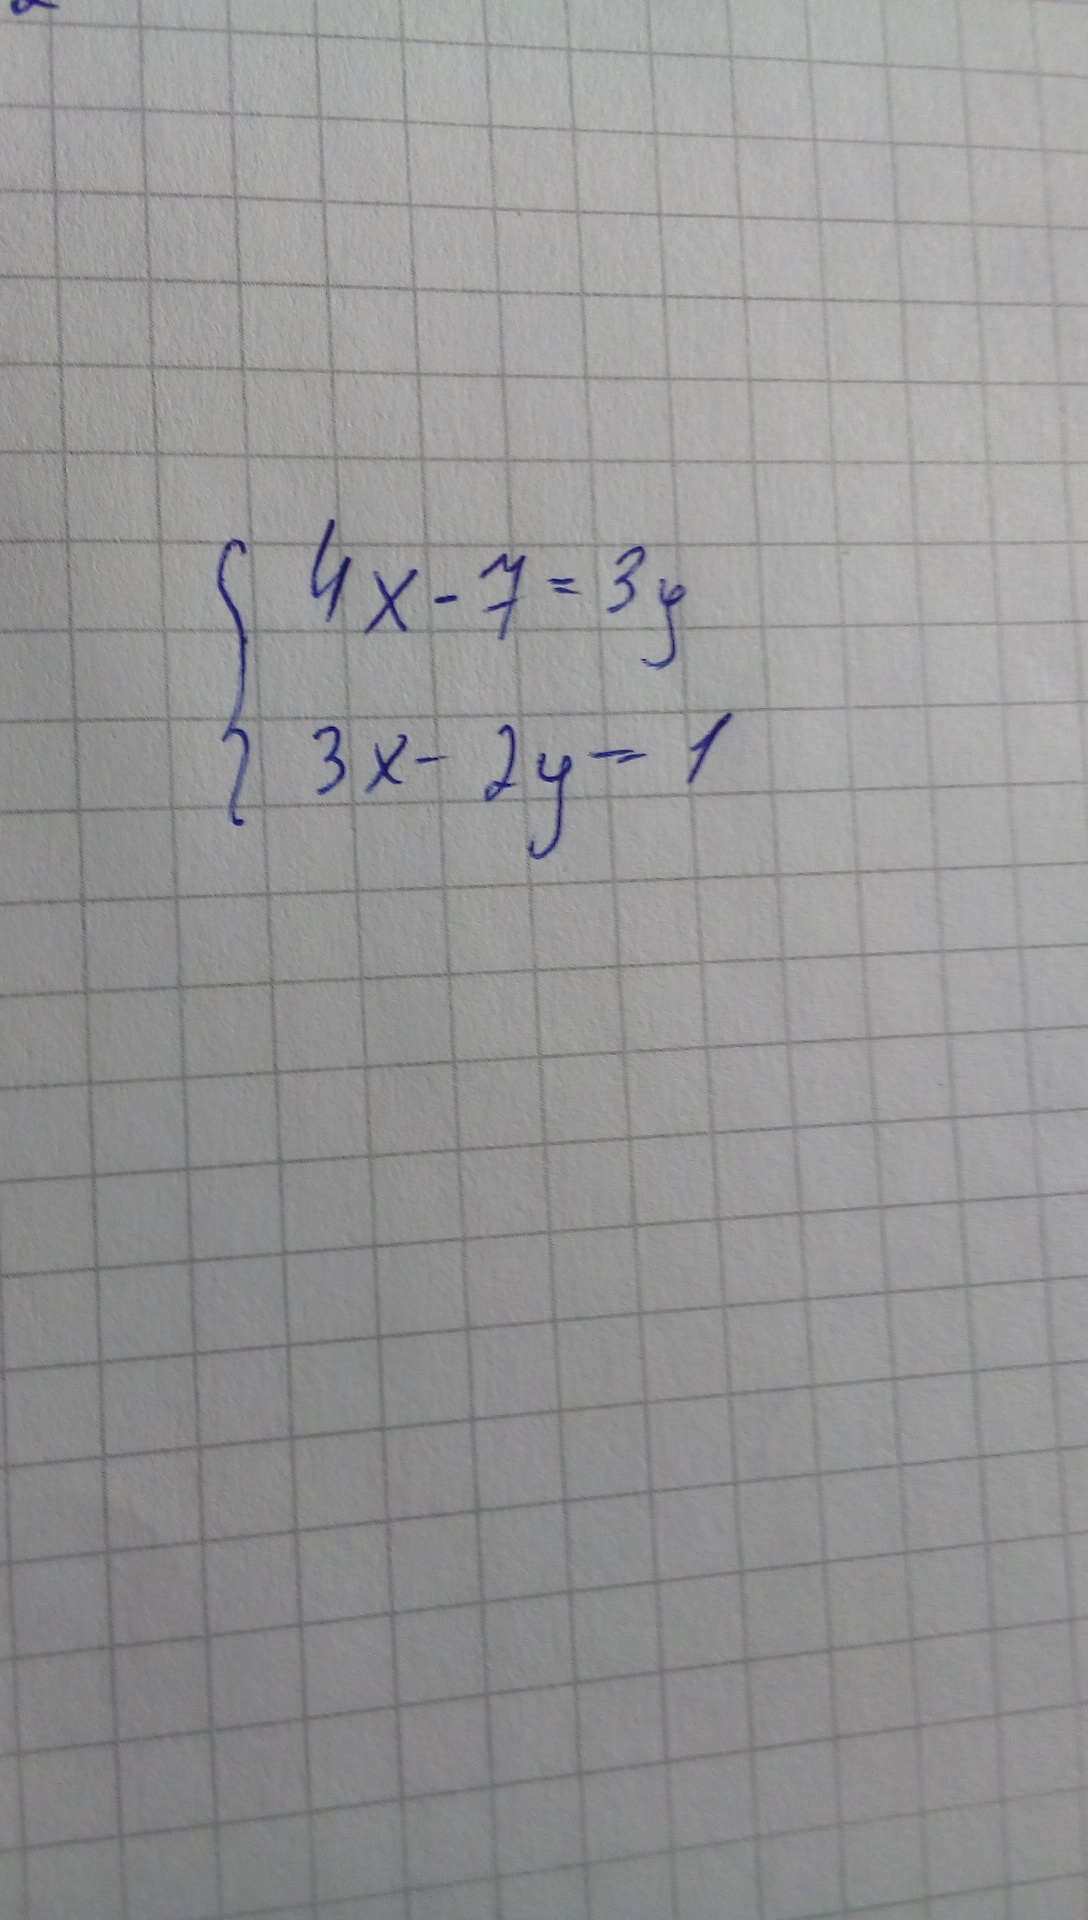 4x - 7 = 3y
3x - 2y = 1